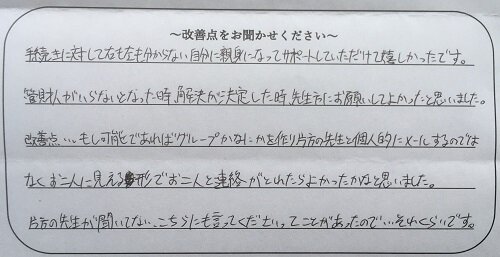 ～改善点をお聞かせください～
手続きに対して右も左も分からない自分に親身になってサポートしていただけて嬉しかったです。
管財人がいらないとなった時、解決が決定した時、先生方にお願いしてよかったと思いました。
改善点…もし可能であればグループかなにかを作り片方の先生と個人的にメールするのでは
なくお二人に見える形でお二人と連絡がとれたらよかったかなと思いました。
片方の先生が聞いてない、こちらにも言ってくださいってことがあったので…それくらいです。